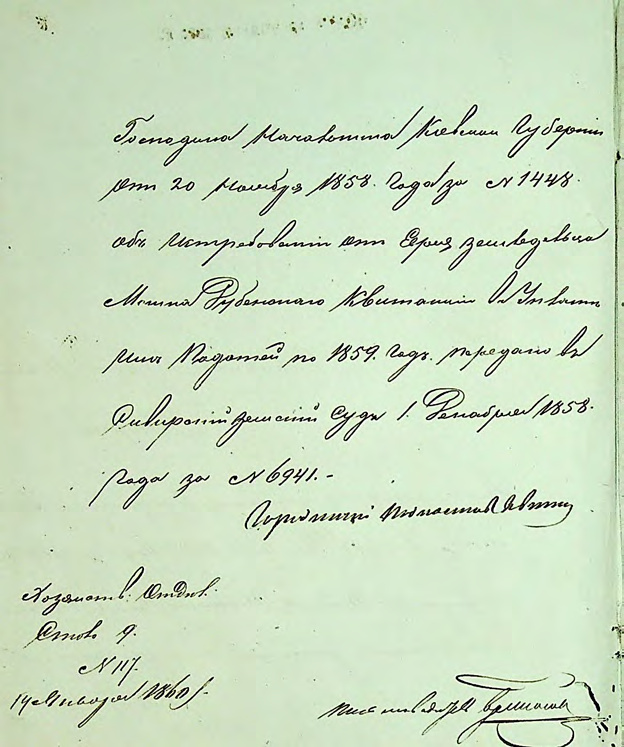 Господина Начальника Киевской Губернии
отъ 20 Ноября 1858. Года за № 1448.
объ истребованіи отъ Еврея земледельца
Рубенскаго Квитанціи въ
Податей по 1859. Годъ. передано въ
Земскій Судъ 1. Декабря 1858.
Года за № 6941.-
Хозяйств. Отдел.
Столъ 9.
№ 117.
14 Января 1860 г.